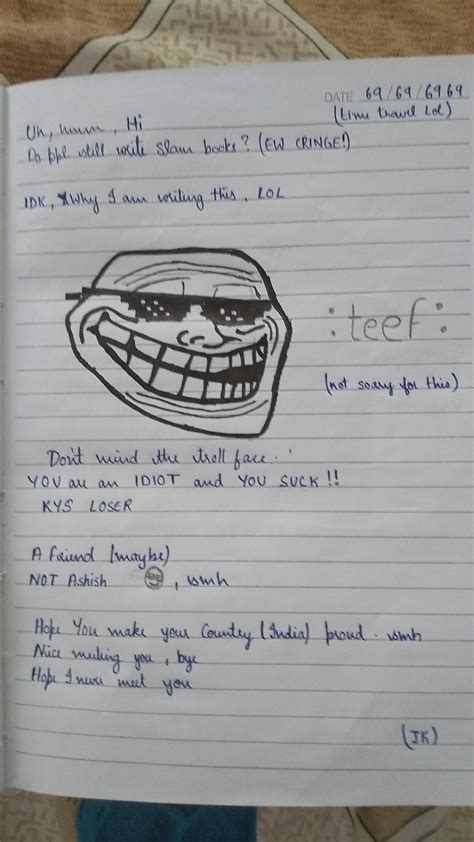 DATE 69/69/6969
(time travel Lol)
Uh, hmmm, Hi
Do ppl still write Slam books? (EW CRINGE!)
IDK, Why I am writing this, LOL
:teef:
(not sorry for this)
Don't mind the troll face.
YOU are an IDIOT and YOU SUCK!!
KYS LOSER
A friend (maybe)
NOT Ashish , smh
Hope You make your Country (India) proud. smh
Nice meeting you, bye
Hope I never meet you
(JK)